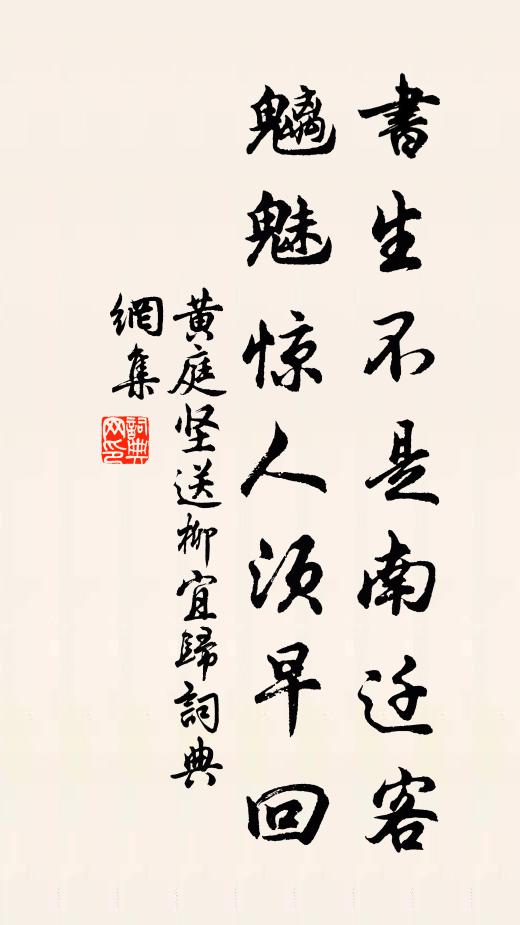 書生不是南迁客
魑魅惊人须早回
黄庭坚送柳宜歸詞典
網集
詞典
网印